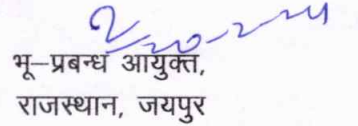 भू–प्रबन्ध आयुक्त,
राजस्थान, जयपुर